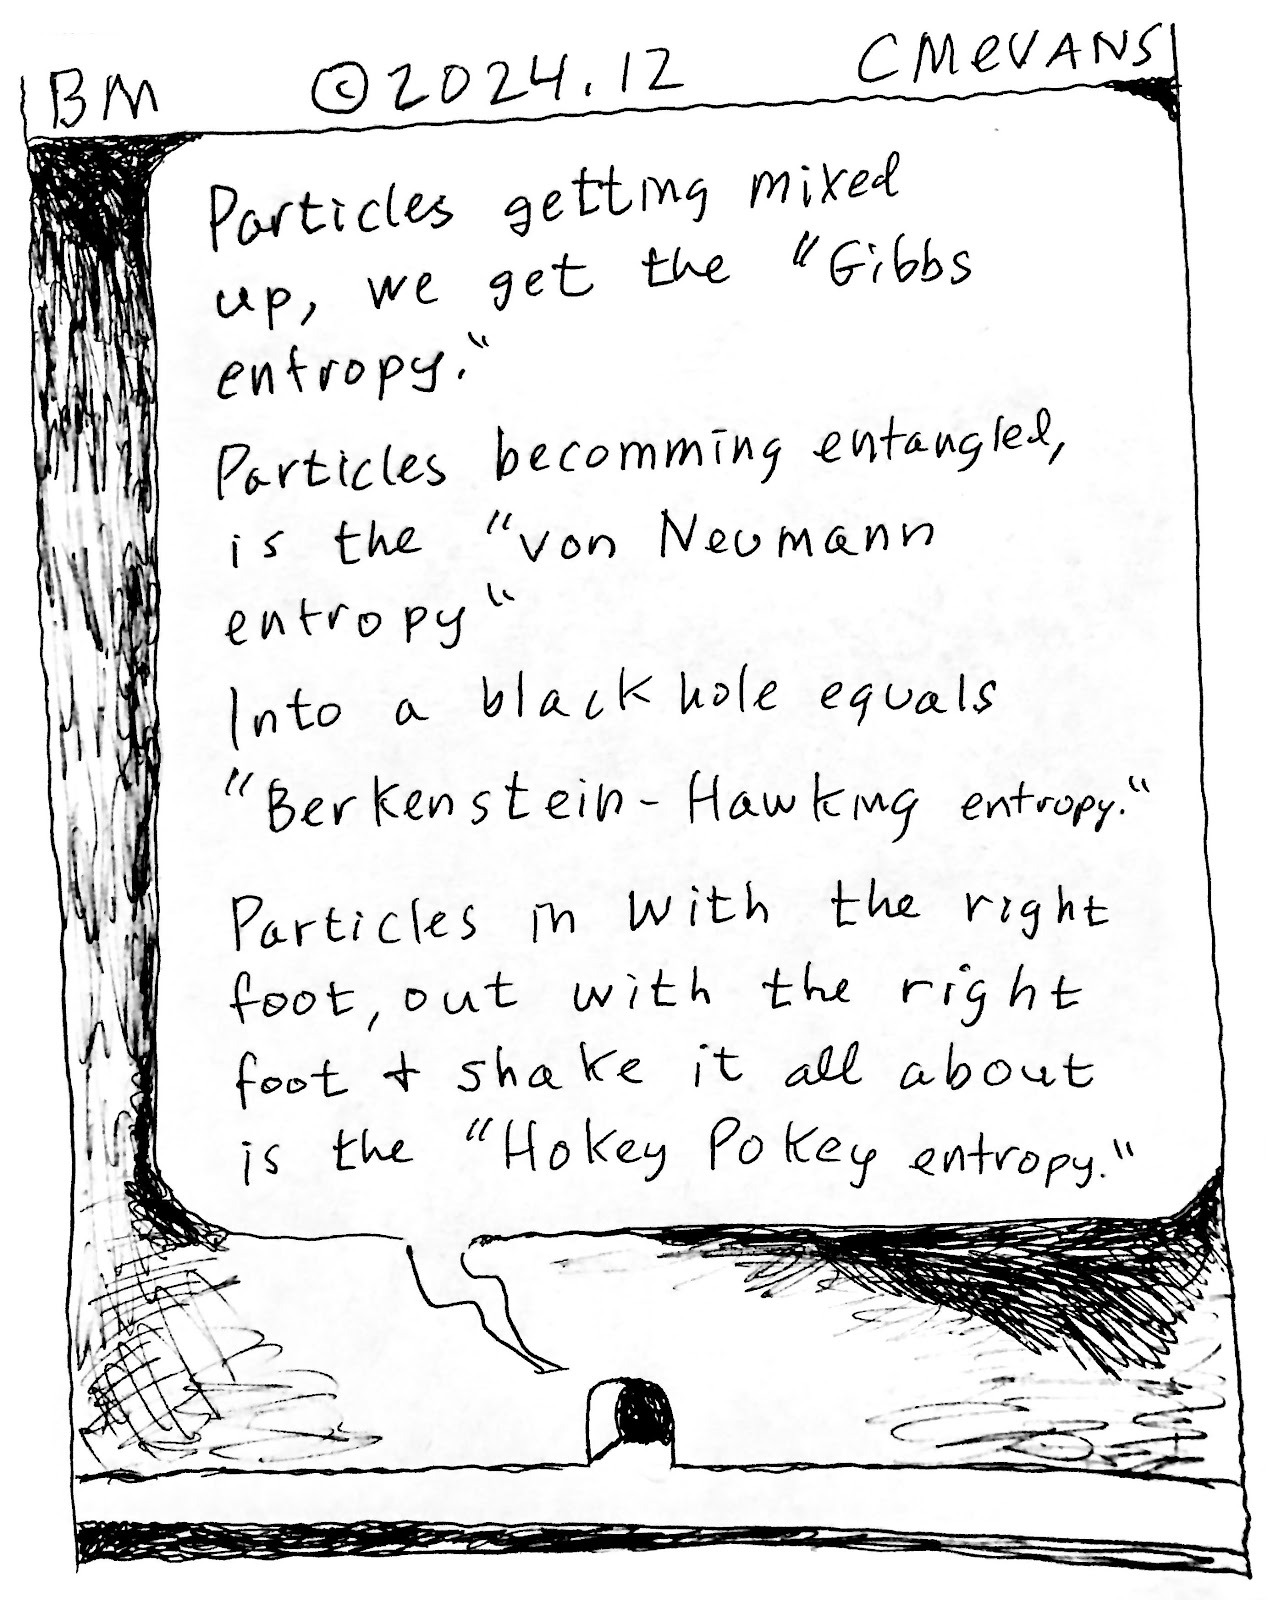 BM ©2024.12 CMEVANS
Particles getting mixed
up, we get the "Gibbs
entropy."
Particles becomming entangled,
is the "von Neumann
entropy"
Into a black hole equals
"Berkenstein-Hawking entropy."
Particles in with the right
foot, out with the right
foot + shake it all about
is the "Hokey Pokey entropy."